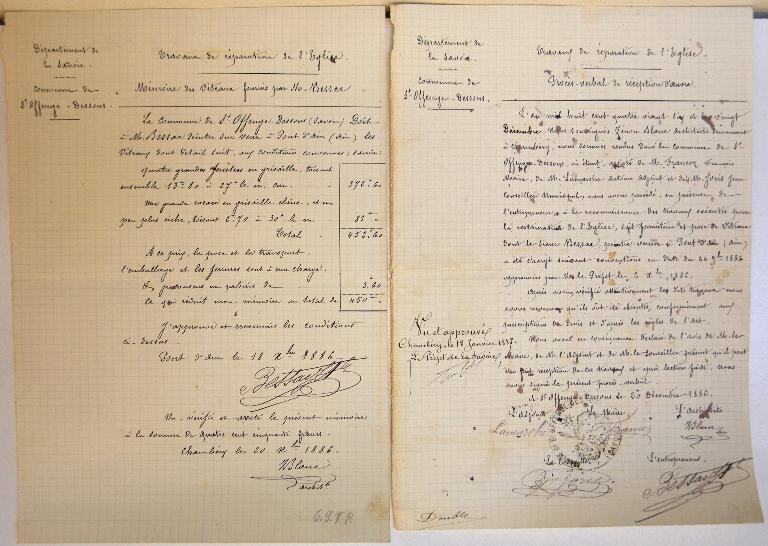 Département de
la Savoie.
Commune de
St Offenge-Dessous.
Travaux de réparation de l'Eglise.
Mémoire des Vitraux fournis par M. Bessac
La Commune de St Offenge Dessous (Savoie) Doit
à Mr Bessac peintre sur verre à Pont d'Ain (Ain) les
Vitraux dont détail suit, aux conditions convenues; savoir:
Quatre grandes fenêtres en grisaille, faisant
ensemble 13m80 à 27f le m. car. 372f60
Une grande rosace en grisaille
peu plus riche, faisant 2m70 à 30f le m. 81f
Total 453f60
A ce prix, la pose et le transport,
l'emballage et les ferrures sont à ma charge.
3,60
Ce qui réduit mon mémoire au total de 450f
J'approuve et reconnais les conditions
ci-dessus.
Pont d'Ain le 18 Xbre 1886
Bessac
Vu, vérifié et arrêté le présent mémoire
à la somme de quatre cent cinquante francs.
Chambéry le 20 Xbre 1886.
Blanc
Archte
Département de
la Savoie.
Commune de
St Offenge-Dessous.
Travaux de réparation de l'Eglise.
Procès-verbal de réception d'œuvre.
L'an mil huit cent quatre vingt six et le vingt
Décembre, Nous soussigné Blanc Architecte demeurant
à Chambéry, nous sommes rendu dans la commune de St
Offenge-Dessous, où étant, assisté de M. Francoz François
Maire, de M. Lamarche Antoine Adjoint et de M. Jean
Conseiller Municipal, nous avons procédé, en présence de
l'entrepreneur à la reconnaissance des travaux exécutés pour
la restauration de l'Eglise, soit fourniture et pose de Vitraux
dont le sieur Bessac, peintre verrier à Pont d'Ain (Ain)
a été chargé suivant conventions en date du 24 9bre 1886
approuvées par Mr le Préfet le 6 Xbre 1886.
Après avoir vérifié attentivement les dits travaux nous
avons reconnu qu'ils ont été exécutés, conformément aux
prescriptions du devis et d'après les règles de l'art.
Nous avons en conséquence déclaré de l'avis de M. le
Maire, de M. l'Adjoint et de M. le Conseiller présent qu'il peut
être fait réception de ces travaux et après lecture faite, nous
avons signé le présent procès-verbal.
A St Offenge Dessous le 20 Décembre 1886.
Vu et approuvé
Chambéry le 18 Janvier 1887.
Le Préfet de la Savoie,
L'adjoint
Le Maire
L'architecte
Lamarche
Blanc
Le Conseiller
L'entrepreneur
Bessac
Double